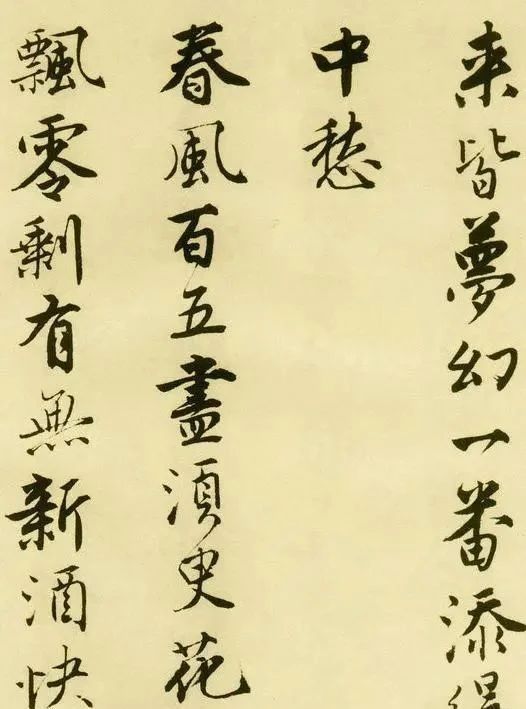 来皆夢幻一番添得
中愁
春風百五盡須臾花
飄零剩有無新酒快